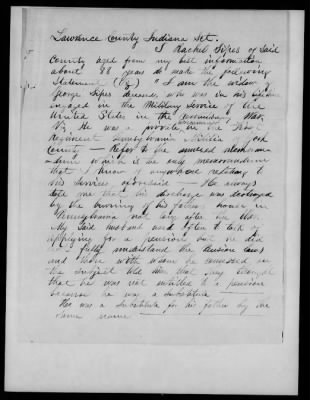 Lawrence County Indiana Sct.
I Rachel Sipes of Said
County aged from my best information
about 88 years do make the following
Statement (Viz) "I am the widow of
George Sipes deceased, who was in his lifetime
engaged in the Military Service of the
United States in the Revolutionary War,
Viz. He was a private, in the
Regiment Pennsylvania Militia York
County — Refer to the annexed memoran
dum which is the only memorandum
that I know of any where relating to
his services aforesaid — He always
told me that his discharge was destroyed
by the burning of his fathers house, in
Pennsylvania not long after the War.
My Said husband used often to talk of
applying for a pension but he did
not fully understand the Pension laws
and those with whom he conversed on
the subject told him that they thought
that he was not entitled to a pension
because he was a substitute —
He was a Substitute for his father by the
same name —